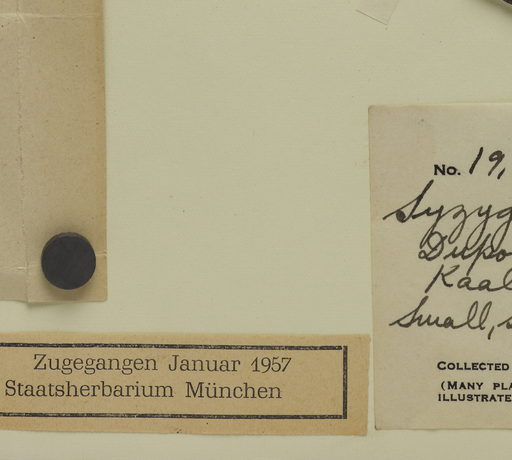 Zugegangen Januar 1957
Staatsherbarium München
No. 19,
Syzyg
Dupo
Kaal
Small, s
COLLECTED
(MANY PLA
ILLUSTRATE